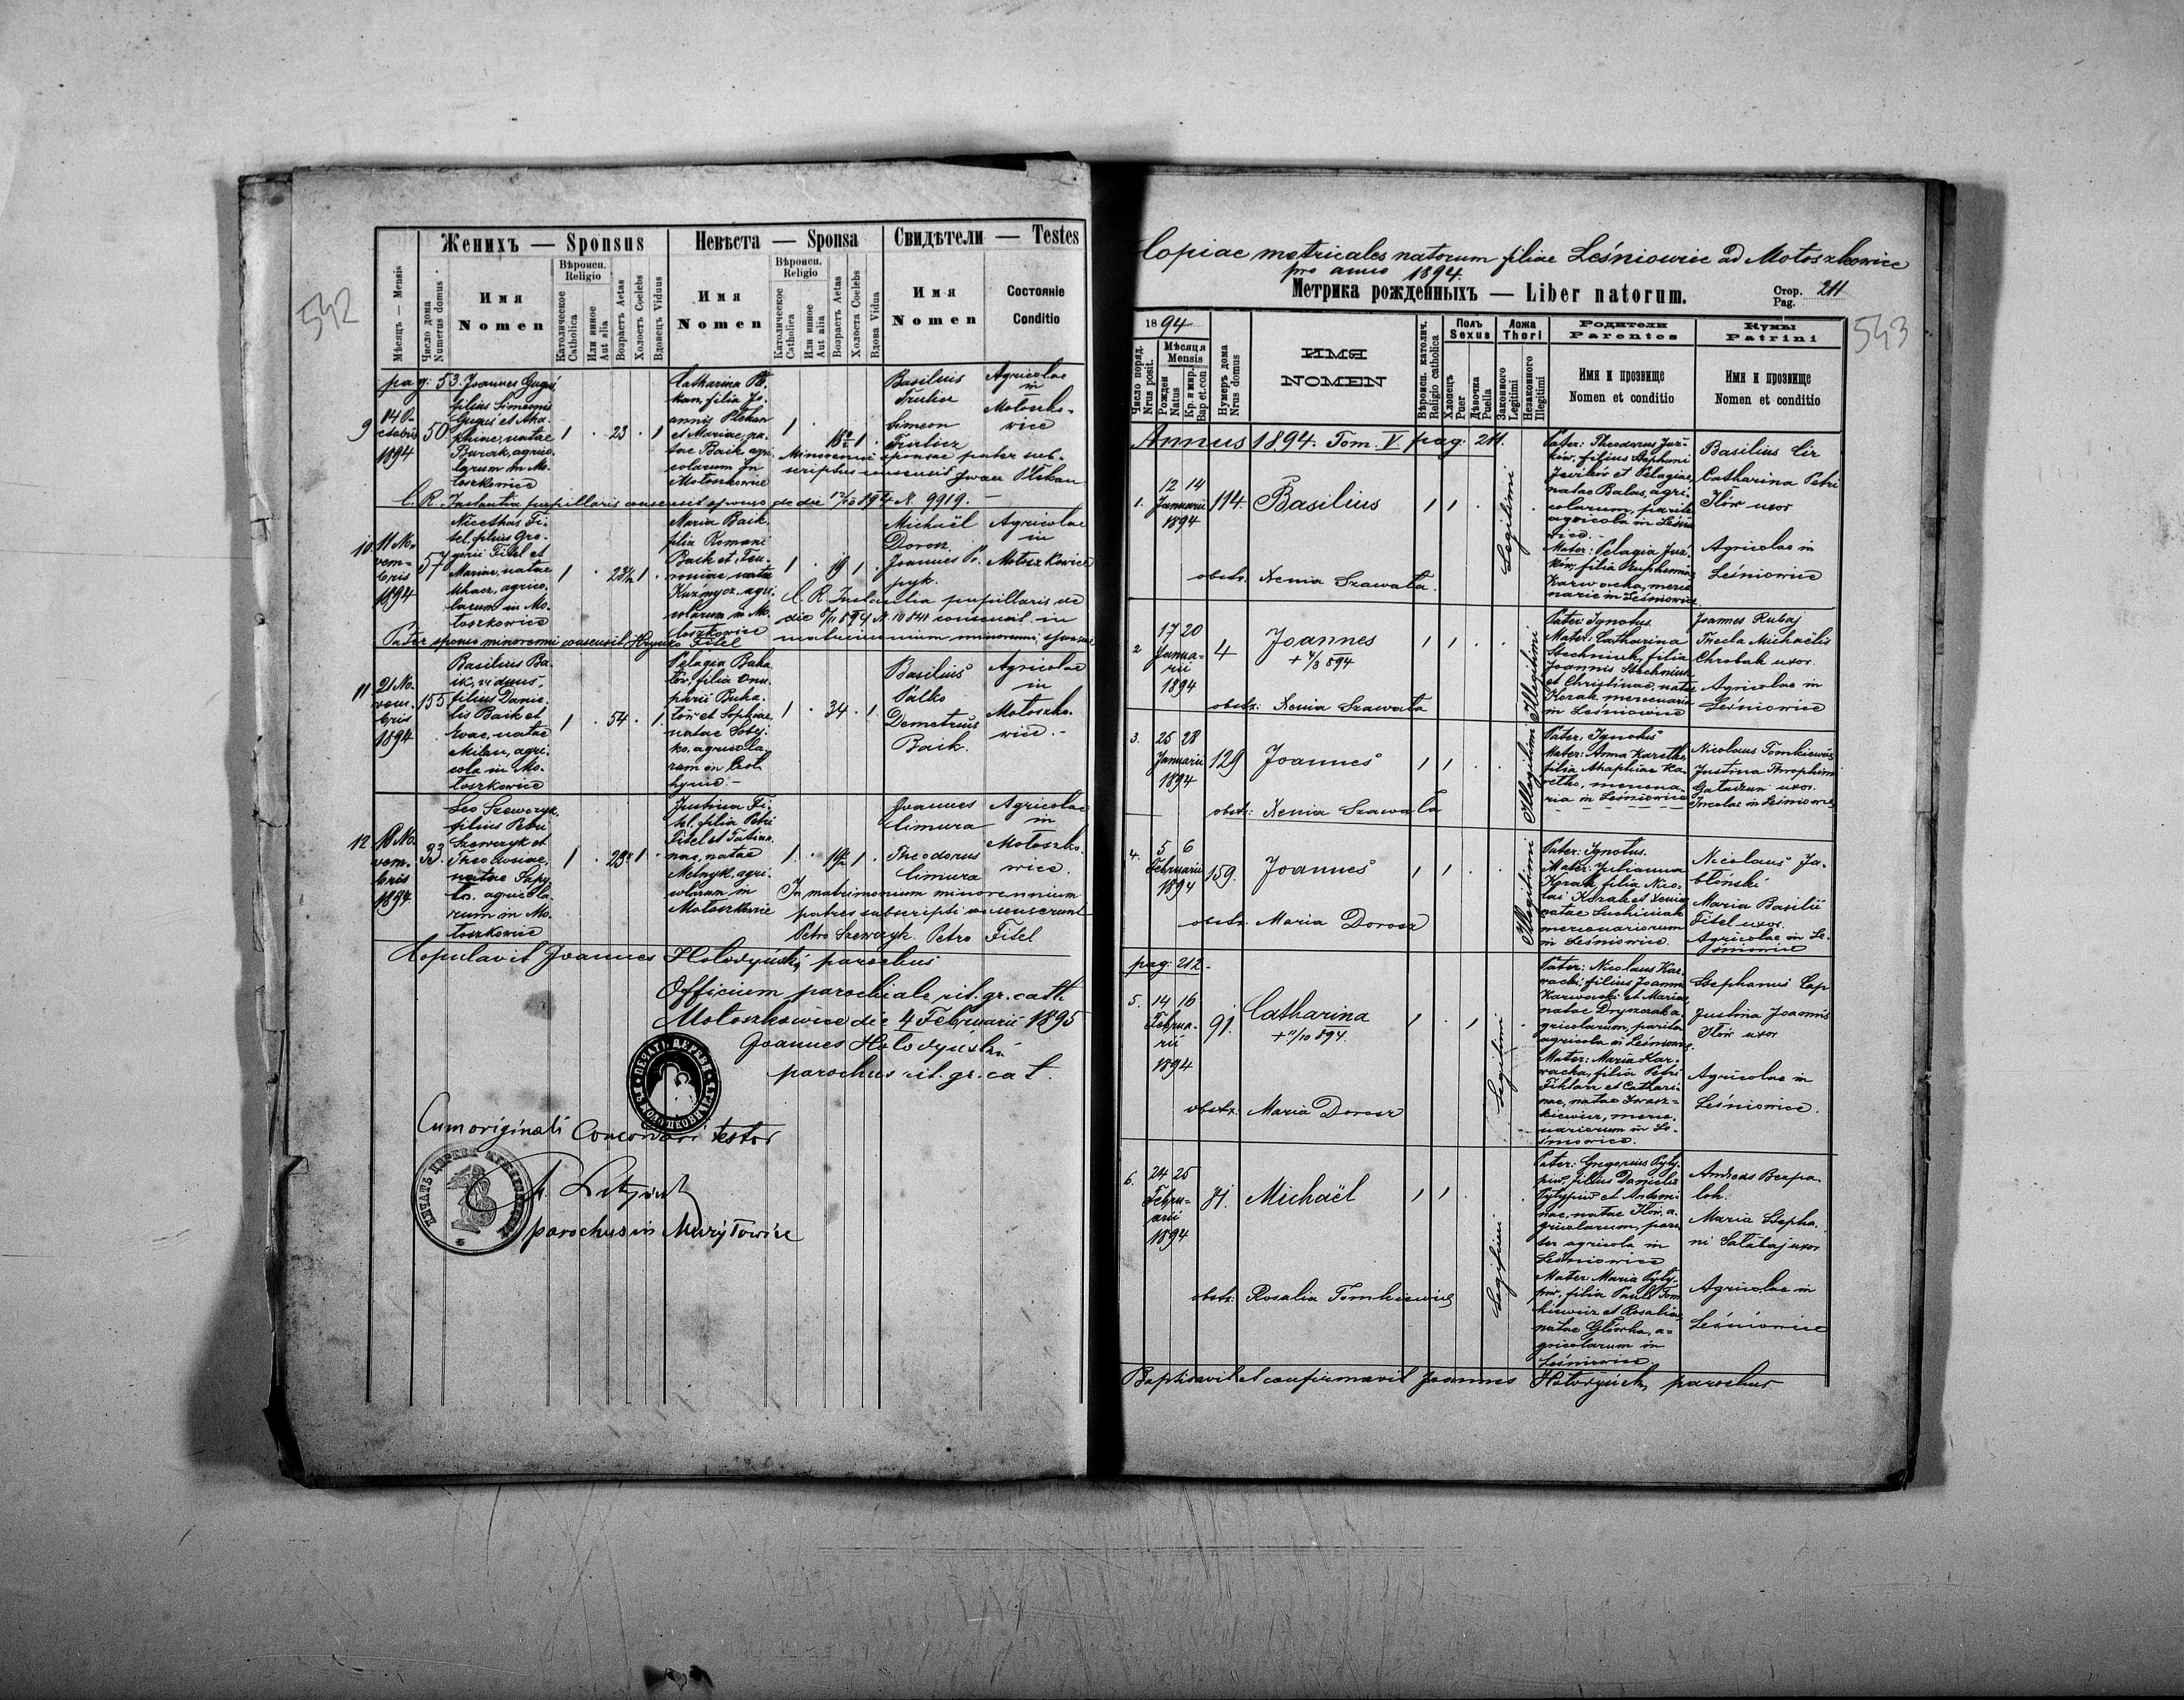 542
Женихъ — Sponsus
Невѣста — Sponsa
Свидѣтели — Testes
Мѣсяцъ — Mensis
Число дома
Numerus domus
Имя
Nomen
Вѣроисп.
Religio
Католическое
Catholica
Или инное
Aut alia
Возрастъ Aetas
Холостъ Coelebs
Вдовецъ Viduus
Имя
Nomen
Вѣроисп.
Religio
Католическое
Catholica
Или инное
Aut alia
Возрастъ Aetas
Холоста Coelebs
Вдова Vidua
Имя
Nomen
Состояніе
Conditio
pag: 53.
9
1894
50
Joannes Guguś
filius Simeonis
Guguś et Aha-
phiae, natae
Burak, agrico-
larum in Mo-
toszkowice
1 . 23 . 1
Catharina Ple-
kan, filia Jo-
annis Plekan
et Mariae, na-
tae Baik agri-
colarum in
Motoszkowice
1 .
Basilius
Simeon
Agricolae
in
Motoszko-
wice
Minorenni sponsae pater sub-
scriptus consensit Jwan Plekan
C. R. Instantia pupillaris consensit sponso de die 12/10 894 N. 9919. —
10
11 No-
vem-
bris
1894
57
Nicethas Fi-
tel, filius Gre-
gorii Fitel et
Mariae, natae
agrico-
larum in Mo-
toszkowice
1 . 23½ 1 .
Maria Baik
filia Romani
Baik et
natae
Kuźmycz, agri-
colarum in Mo-
toszkowice
1 . 19 1 .
Michaël
Dorosz
Joannes
Agricolae
in
Motoszkowice
C. R. Instantia pupillaris de
die 8/11 894 N. 10841 consensit in
matrimonium minorenni sponsae
Pater sponsi minorenni consensit Hrynko Fitel
11
21 No-
vem-
bris
1894
155
Basilius Ba-
ik, viduus,
filius Danie-
lis Baik et
Evae, natae
Milan, agri-
cola in Mo-
toszkowice
1 . 54 . 1
Pelagia Buha-
tór, filia Onu-
phrii Buha-
tór et Sophiae,
natae Sobej-
ko, agricola-
rum in
1 . 34 . 1
Basilius
Pálko
Demetrius
Baik.
Agricolae
in
Motoszko-
wice. -
12
18 No-
vem-
bris
1894
33
Leo Szewczyk,
filius Petri
Szewczyk et
Theodosiae,
natae Sapy-
ła, agricola-
rum in Mo-
toszkowice
Justina Fi-
tel, filia Petri
Fitel et Tatian-
nae, natae
Melnyk, agri-
colarum in
Motoszkowice
Joannes
Cimura
Theodorus
Cimura
Agricolae
in
Motoszko-
wice.
In matrimonium minorennium
patres subscripti consenserunt
Petro Szewczyk. Petro Fitel
Copulavit Joannes Hołodyński parochus
Officium parochiale rit. gr. cath.
Motoszkowice die 4 Februarii 1895
Joannes Hołodyński
parochus rit. gr. cat.
Cum originali Concordari testor
parochus in
543
Copiae metricales natorum filiae Leśniowice ad Motoszkowice
pro anno 1894.
Метрика рожденныхъ — Liber natorum.
Стор.
Pag. 211
1894
Число поряд.
Nrus posit.
Мѣсяця
Mensis
Рожден
Natus
Кр. и мир.
Bap et.con
Нумеръ дома
Nrus domus
ИМЯ
NOMEN
Вѣроисп. католич.
Religio catholica
Полъ
Sexus
Хлопецъ
Puer
Дѣвочка
Puella
Ложа
Thori
Законного
Legitimi
Незаконного
Illegitimi
Родители
Parentes
Имя и прозвище
Nomen et conditio
Кумы
Patrini
Имя и прозвище
Nomen et conditio
Annus 1894. Tom. V pag: 211.
1.
12 14
Januarii
1894
114.
Basilius
Legitimi
Pater: Theodorus
filius Stephani
et Pelagiae,
natae Balas, agri-
colarum, pariter
agricola in Leśnio-
wice. -
Mater: Pelagia
filia Euphemiae
Karwacka, merce-
nariae in Leśniowice.
Basilius Cir
Catharina Petri
Ilów uxor
Agricolae in
Leśniowice
obstr. Xenia Szawała.
2
17 20
Janua-
rii
1894
4
Joannes
+ 4/3 894
Illegitimi
Pater: Ignotus.
Mater: Catharina
Stechniuk, filia
Joannis Stechniuk
et Christinae, natae
Korak mercenaria
in Leśniowice
Joannes Rubaj
Thecla Michaëlis
Chrobak uxor.
Agricolae in
Leśniowice
obstr: Xenia Szawała
3.
25 28
Januarii
1894
129
Joannes
Illegitimi
Pater, Ignotus
Mater: Anna Karetko,
filia Ahaphiae Ka-
retko, mercena-
ria in Leśniowice
Nicolaus Tomkiewicz
Justina
uxor.
Incolae in Leśniowice
obstr: Xenia Szawała
4.
5 6
Februarii
1894
159.
Joannes
Illegitimi
Pater: Ignotus.
Mater: Julianna
Korak filia Nico-
lai Korak et Xenia
natae Luchiniak
mercenariorum
in Leśniowice.
Nicolaus Ja-
błoński
Maria Basilii
Fitel uxor.
Agricolae in Le-
śniowice
obstr. Maria Dorosz
pag: 212.
5.
14 16
Februa-
rii
1894
91.
Catharina
+ 11/10 894.
Legitimi
Pater: Nicolaus Kar-
wacki, filius Joannis
Karwacki et Mariae,
natae a-
gricolarum, pariter
agricola in Leśniowice.
Mater: Maria Kar-
wacka, filia Petri
et Cathari-
nae, natae Iwasz-
kiewicz, merce-
nariorum in Le-
śniowice.
Stephanus Cap
Justina Joannis
Ilów uxor
Agricolae in
Leśniowice.
obstr. Maria Dorosz
6.
24 25
Febru-
arii
1894
Michaël
Legitimi
Pater: Gregorius Pyly-
piw, filius Danielis
Pylypiw et Antoni-
nae, natae Ilów, a-
gricolarum, pari-
ter agricola in
Leśniowice
Mater: Maria Pyly-
piw, filia Pauli Tom-
kiewicz et Rosaliae,
natae Główka, a-
gricolarum in
Leśniowice.
Andreas Bezpa-
loh.
Maria Stepha-
ni Sałabaj uxor
Agricolae in
Leśniowice
obstr: Rosalia Tomkiewicz
Baptisavit et confirmavit Joannes Hołodyński parochus